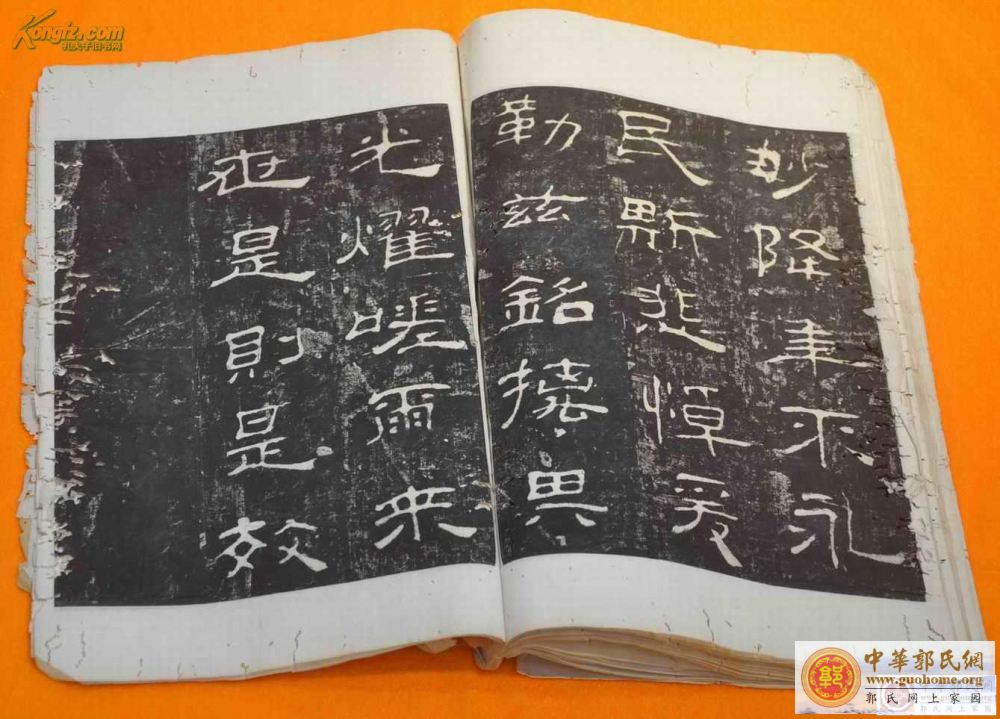 妙降年不永
民斯悲悼爰
勒茲銘摛其
光耀嗟爾來
世是則是效
Kongfz.com
孔夫子旧书网
郭
中華郭氏網
www.guohome.org
郭氏网上家园